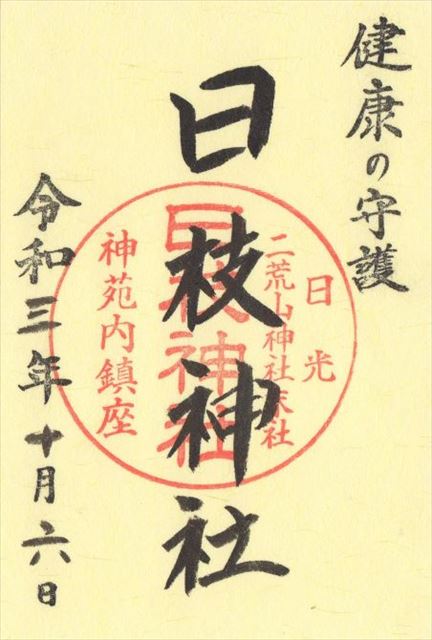 健康の守護
日枝神社
令和三年十月六日
日光
二荒山神社末社
日枝神社
神苑内鎮座